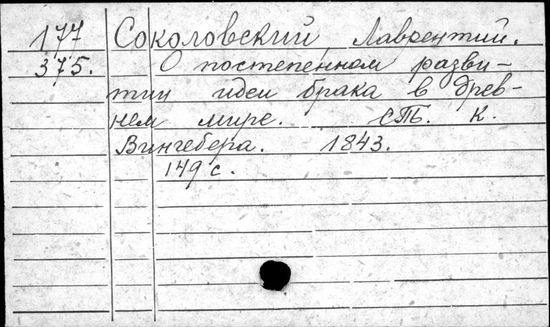 177 Соколовский, Лаврентий.
375. О постепенном разви-
тии идеи брака в древ-
нем мире. СПб. К.
Вингебера. 1843.
149 с.